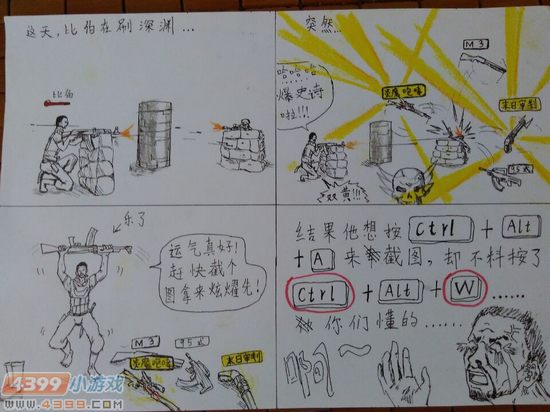 这天，比伯在刷深渊...
比伯
突然...
M3
哈哈哈哈
爆史诗
啦!!!
末日审判
双黄!!!
95式
乐了
运气真好!
赶快截个
图拿来炫耀先!
M3
95式
末日审判
结果他想按 Ctrl + Alt
+ A 来截图，却不料按了
Ctrl + Alt + W ......
你们懂的......
啊~
4399小游戏
www.4399.com